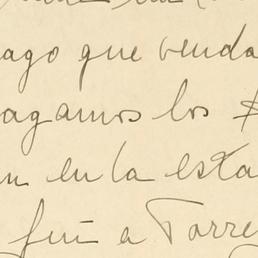 ago que venda
agamos los $
n en la esta
fui a Torre